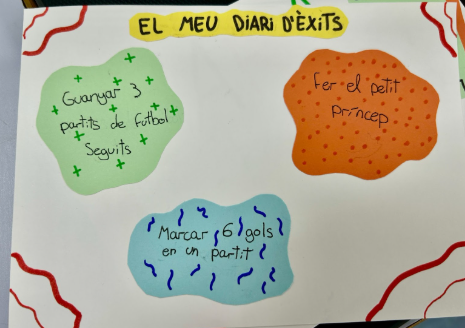 EL MEU DiARi D'ÈXiTS
Guanyar 3
partits de futbol
Seguits
Fer el petit
príncep
Marcar 6 gols
en un partit